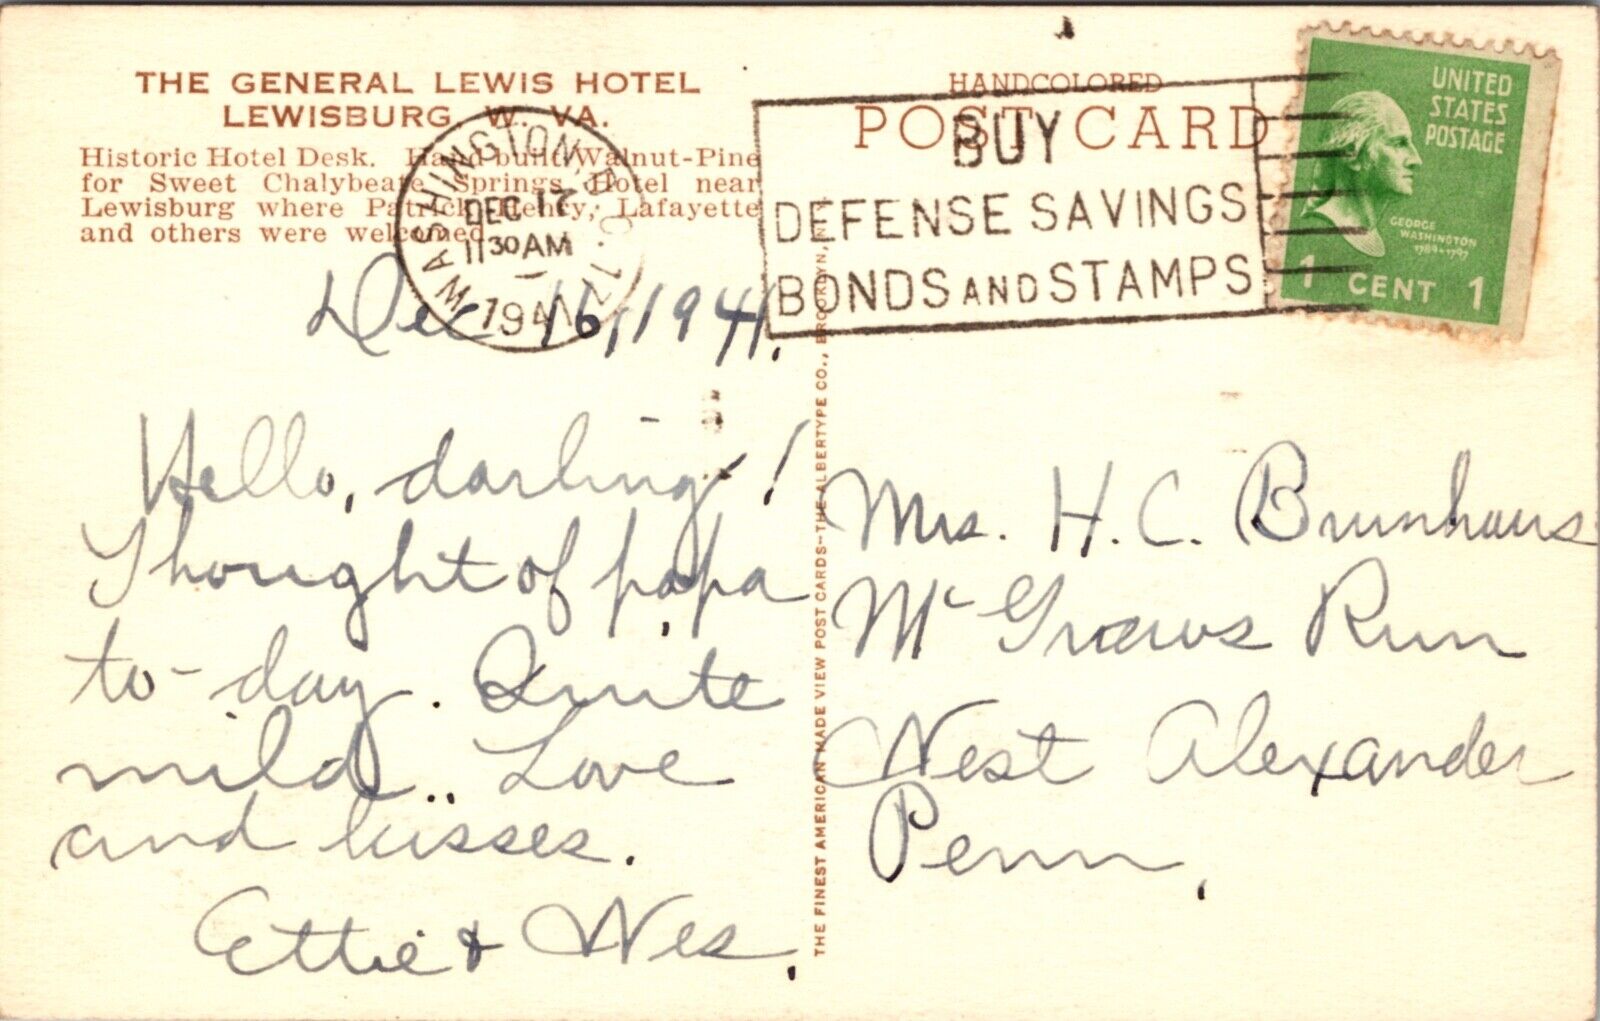 THE GENERAL LEWIS HOTEL
LEWISBURG, W. VA.
Historic Hotel Desk. Hand-built Walnut-Pine
for Sweet Chalybeate Springs Hotel near
Lewisburg where Patrick Henry, Lafayette
and others were welcomed.
WASHINGTON, D.C.
DEC 17
11 30 AM
1941
Dec 16, 1941.
Hello, darling!
Thought of papa
to-day. Quite
mild.. Love
and kisses.
Ettie & Wes.
HANDCOLORED
POST CARD
BUY
DEFENSE SAVINGS
BONDS AND STAMPS
UNITED
STATES
POSTAGE
GEORGE
WASHINGTON
1789-1797
1 CENT 1
THE FINEST AMERICAN MADE VIEW POST CARDS—THE ALBERTYPE CO., BROOKLYN, N.Y.
Mrs. H. C. Brunhaus
Mc Graws Run
West Alexander
Penn.